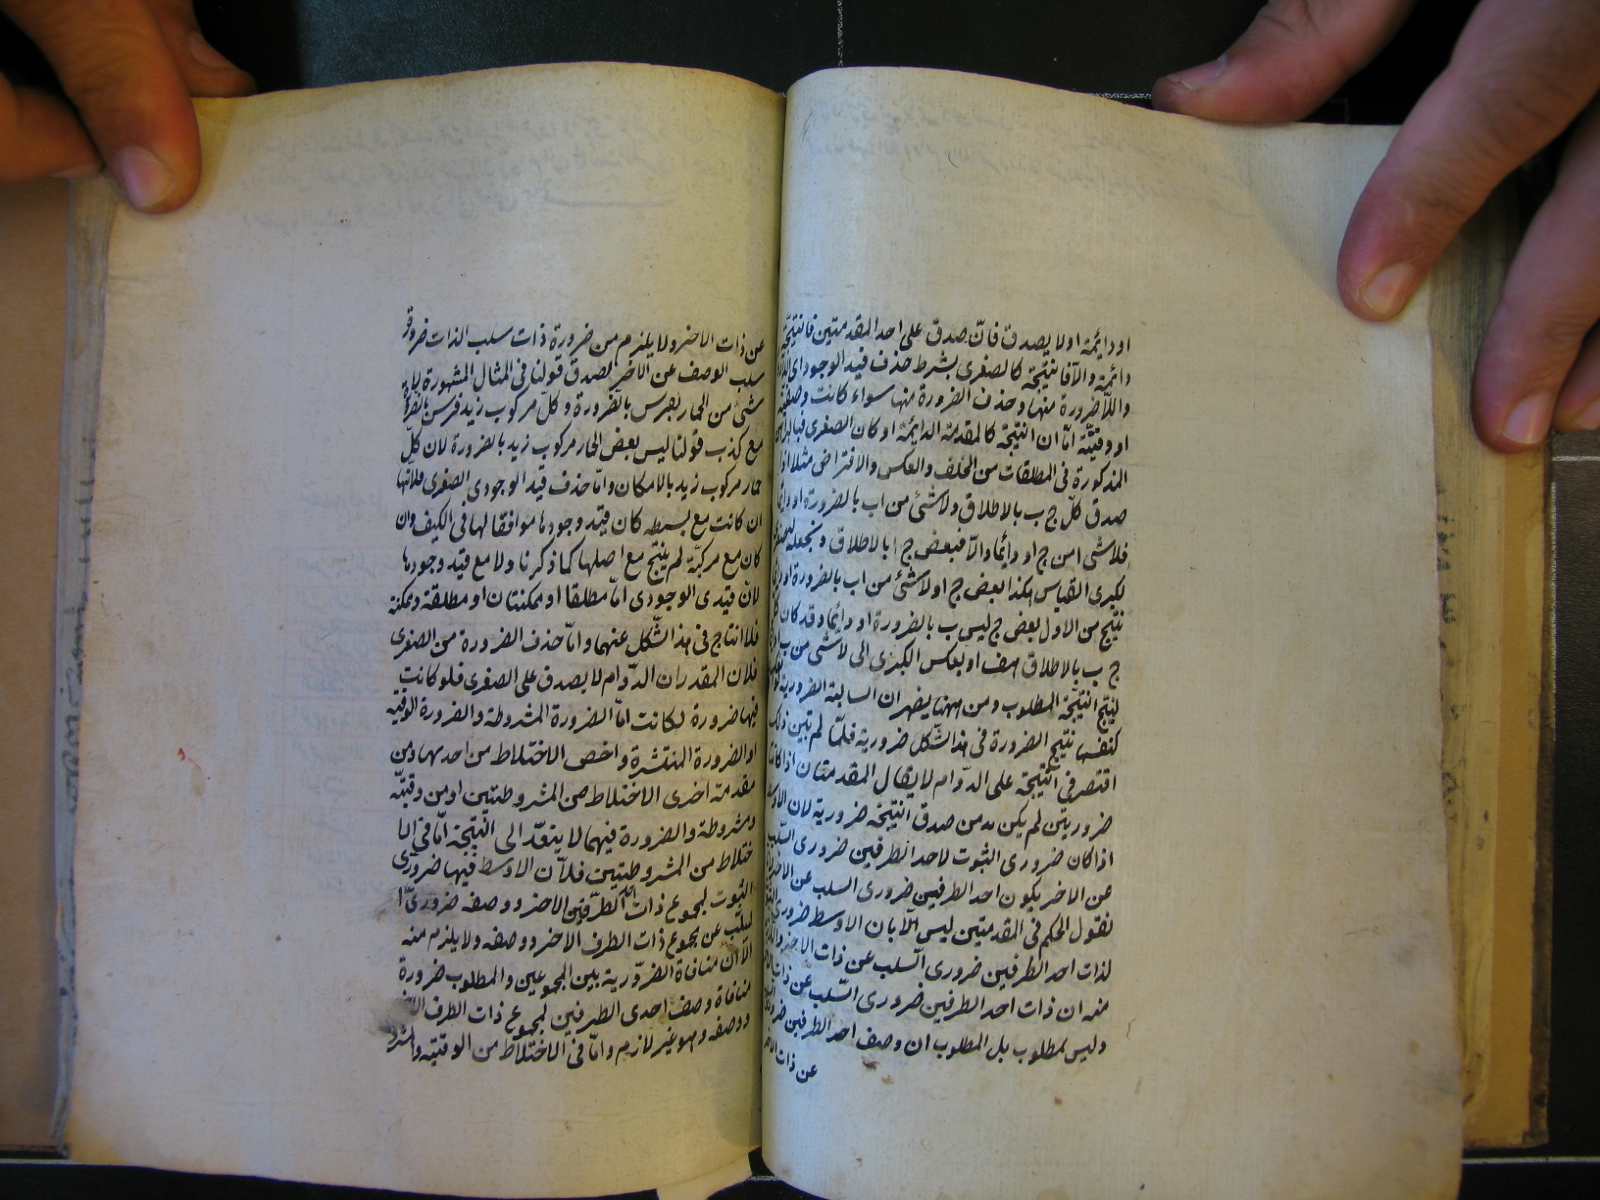 او دائمة او لا يصدق فان صدق على احد المقدمتين فالنتيجة
دائمة والا فالنتيجة كالصغرى بشرط حذف قيد الوجود اى
واللاضرورة منها وحذف الضرورة منها سواء كانت وصفية
او وقتية اما ان النتيجة كالمقدمة الدائمة او كان الصغرى
المذكورة فى المطلقات من الخلف والعكس والافتراض مثلا اذا
صدق كل ج ب بالاطلاق ولا شئ من ا ب بالضرورة او دائما
فلا شئ من ج ا و دائما والا فبعض ج ا بالاطلاق ونجعله
لكبرى القياس هكذا بعض ج ا ولا شئ من ا ب بالضرورة او
ينتج من الاول بعض ج ليس ب بالضرورة او دائما وقد كان
ج ب بالاطلاق هف او بعكس الكبرى الى لا شئ من ب
لينتج النتيجة المطلوب ومن ههنا يظهر ان السالبة الضرورية
كنفسها نتيج الضرورة فى هذا الشكل ضرورية فلما لم تبين ذلك
اقتصر فى النتيجة على الدوام لا يقال المقدمتان اذا كانتا
ضروريتين لم يكن بد من صدق النتيجة ضرورية لان الاوسط
اذا كان ضرورى الثبوت لاحد الطرفين ضرورى السلب
عن الاخر يكون احد الطرفين ضرورى السلب عن الاخر
نقول الحكم فى المقدمتين ليس الا بان الاوسط ضرورى
لذات احد الطرفين ضرورى السلب عن ذات الاخر
منه ان ذات احد الطرفين ضرورى السلب عن ذات
وليس بمطلوب بل المطلوب ان وصف احد الطرفين
عن ذات
عن ذات الاخر ولا يلزم من ضرورة ذات سلب الذات ضرورة
سلب الوصف عن الاخر لصدق قولنا فى المثال المشهورة لا
شئ من الحمار بفرس بالضرورة وكل مركوب زيد فرس بالضرورة
مع كذب قولنا ليس بعض الحمار مركوب زيد بالضرورة لان كل
حمار مركوب زيد بالامكان واما حذف قيد الوجودى الصغرى فلانها
ان كانت مع بسيطه كان قيد وجودها موافقا لها فى الكيف وان
كان مع مركبة لم ينتج مع اصلها كما ذكرنا ولا مع قيد وجودها
لان قيدى الوجودى اما مطلقا او ممكنتان او مطلقة وممكنة
فلا انتاج فى هذا الشكل عنهما واما حذف الضرورة من الصغرى
فلان المقدر ان الدوام لا يصدق على الصغرى فلو كانت
فيها ضرورة لكانت اما الضرورة المشروطة والضرورة الوقتيه
او الضرورة المنتشرة واخص الاختلاط من احديهما ومن
مقدمة اخرى الاختلاط من المشروطتين او من وقتية
ومشروطة والضرورة فيهما لا يتعدى الى النتيجة اما فى الا
ختلاط من المشروطتين فلان الاوسط فيها ضرورى
الثبوت لمجموع ذات الطرفين الاخر ووصفه ضرورى ا
لسلب عن مجموع ذات الطرف الاخر ووصفه ولا يلزم منه
الا ان منافاة الضرورية بين المجموعين والمطلوب ضرورة
منافاة وصف احدى الطرفين لمجموع ذات الطرف الاخر
ووصفه وهو غير لازم واما فى الاختلاط من الوقتيه